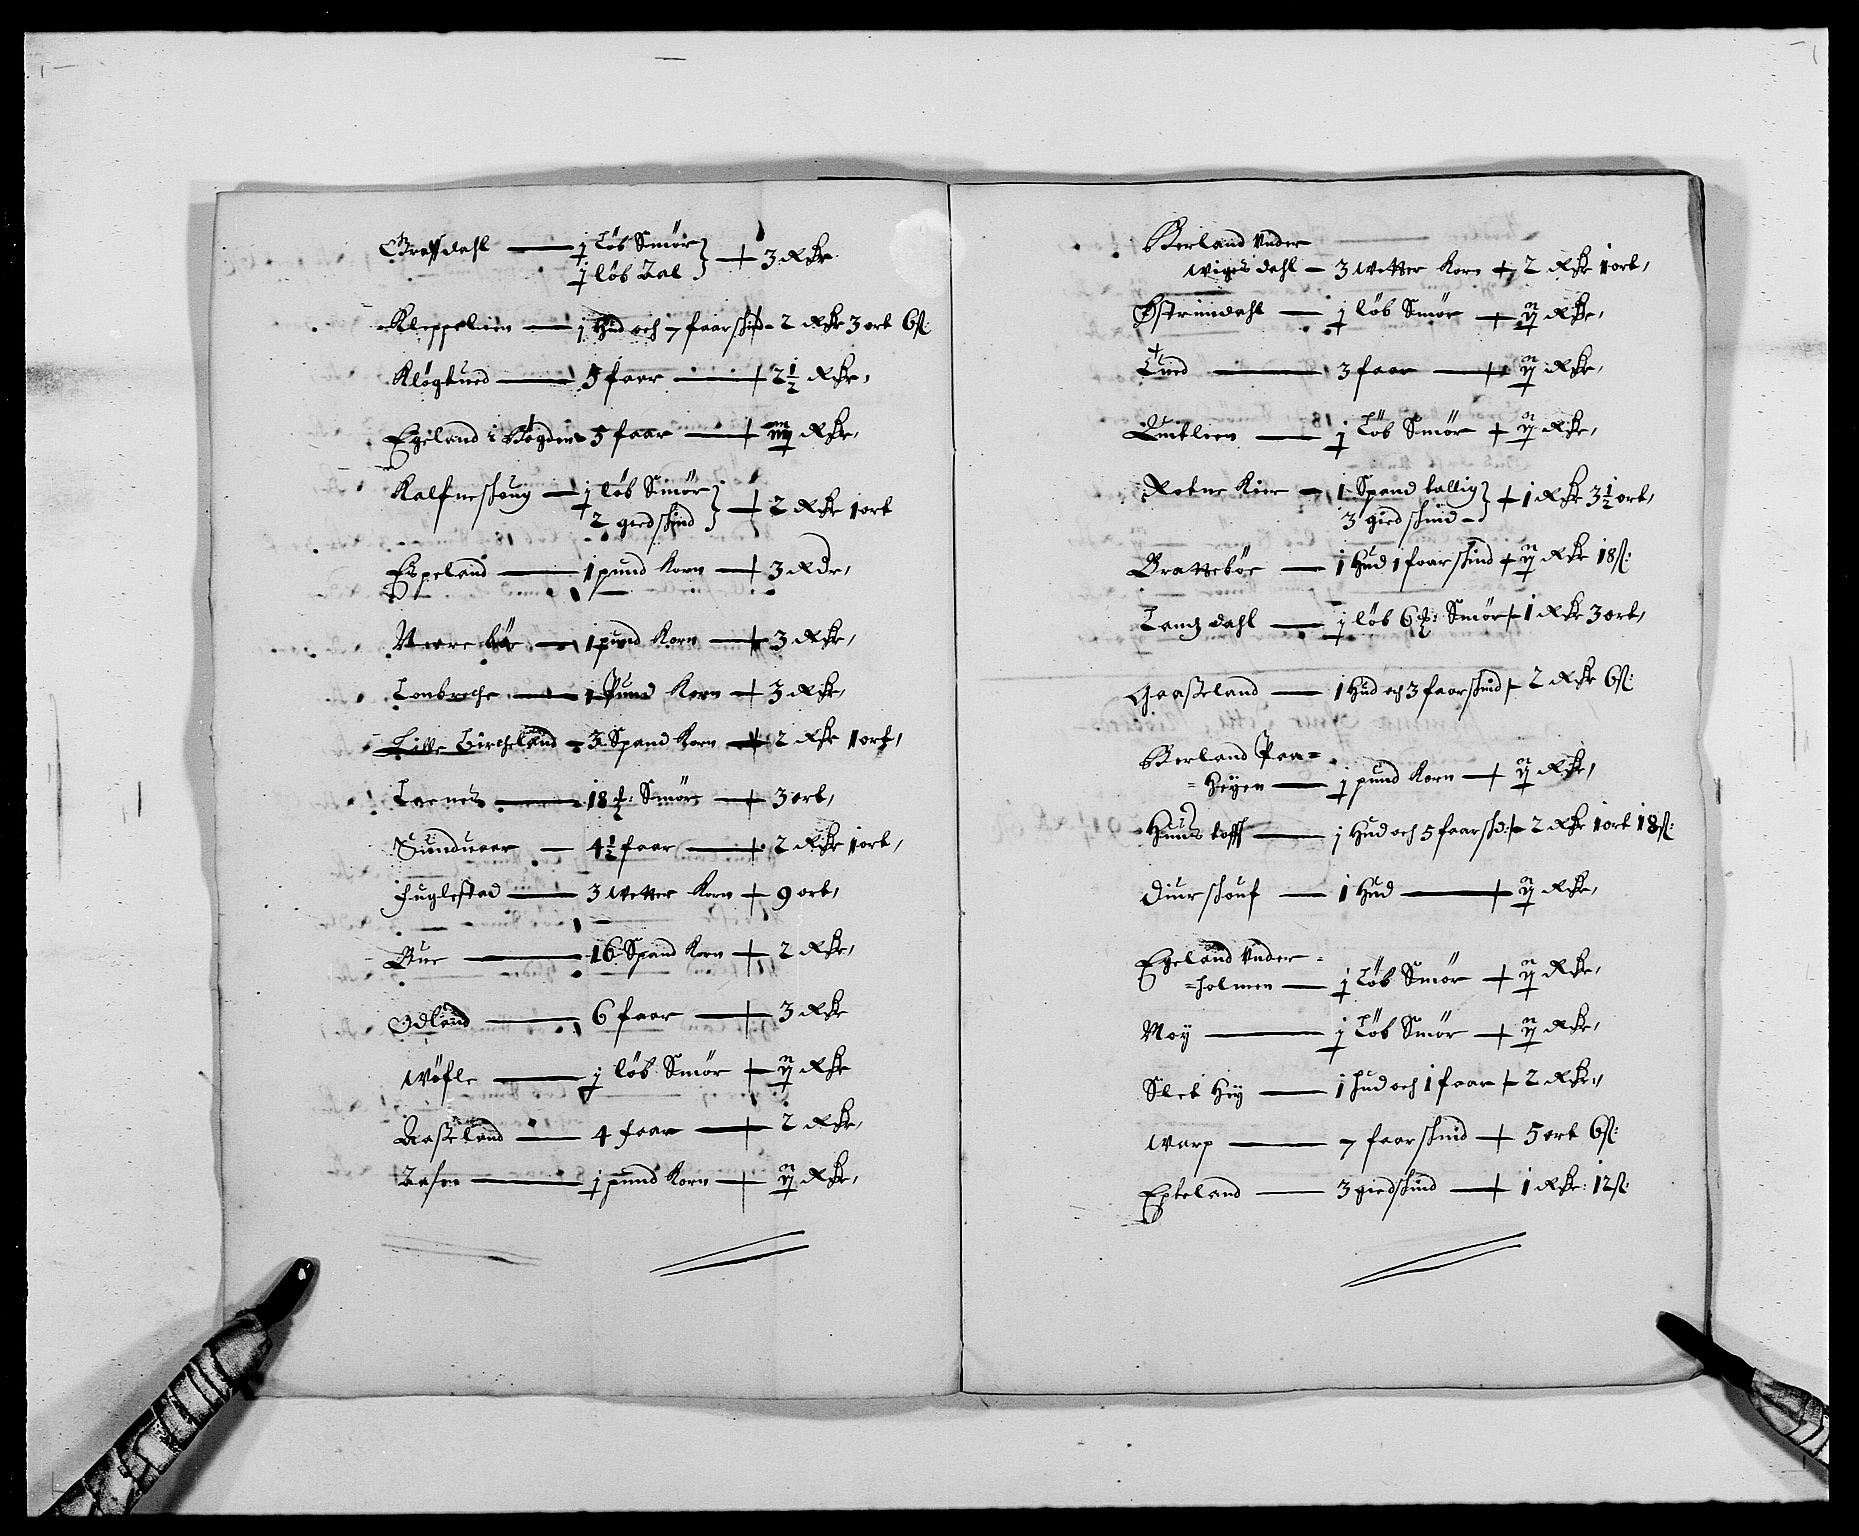 Grassdahl — j Löb Smör
j löb Zal } + 3 Rdr
Kleppelien — j Hud och 7 faarskind - 2 Rdr 3 ort 6 ß:
Kløgtued — 5 faar — + 2½ Rdr,
Egeland i Bøgden - 5 faar — + Rdr,
Kalfueskoug — j löb Smör
2 giedskind } + 2 Rdr 1 ort
Espeland — 1 pund Korn — + 3 Rdr,
Maarebär — 1 pund Korn — + 3 Rdr,
Lonbreche — 1 Pund Korn — + 3 Rdr,
Lille Bircheland - 3 Spand Korn — + 2 Rdr 1 ort,
18 Smör — + 3 ort,
Sunduaar — 4½ faar — + 2 Rdr 1 ort,
Fuglestad — 3 Wetter Korn + 9 ort,
Bue — 16 Spand Korn + 2 Rdr,
Odland — 6 faar — + 3 Rdr
Wöfle — j löb Smör + ij Rdr
Aasseland — 4 faar — + 2 Rdr,
Aasen — j pund Korn — + ij Rdr,
Berland Under
Wigesdahl - 3 Wetter Korn + 2 Rdr 1 ort,
Østrimdahl — j löb Smör — + ij Rdr,
Lund — 3 faar — + ij Rdr,
Quitlien — j Löb Smör + ij Rdr,
Rotne Kier — 1 Spand tallig
3 giedskind - } + 1 Rdr 3½ ort,
Brattebör — 1 Hud 1 faarskind + ij Rdr 18 ß:
Langdahl — j löb 6 Smör + 1 Rdr 3 ort,
Gaasseland — 1 Hud och 3 faarskind + 2 Rdr 6 ß:
Berland Paa=
=Heyen — j pund Korn — + ij Rdr,
Huustofft — j Hud och 5 faarskd: + 2 Rdr 1 ort 18 ß:
Diurskouf — 1 Hud — + ij Rdr,
Egeland Under=
=holmen — j Löb Smör + ij Rdr,
Moy — j Löb Smör + ij Rdr,
Slet Hey — 1 hud och 1 faar + 2 Rdr,
Warp — 7 faarskind — + 5 ort 6 ß:
Epteland — 3 giedskind — + 1 Rdr: 12 ß: